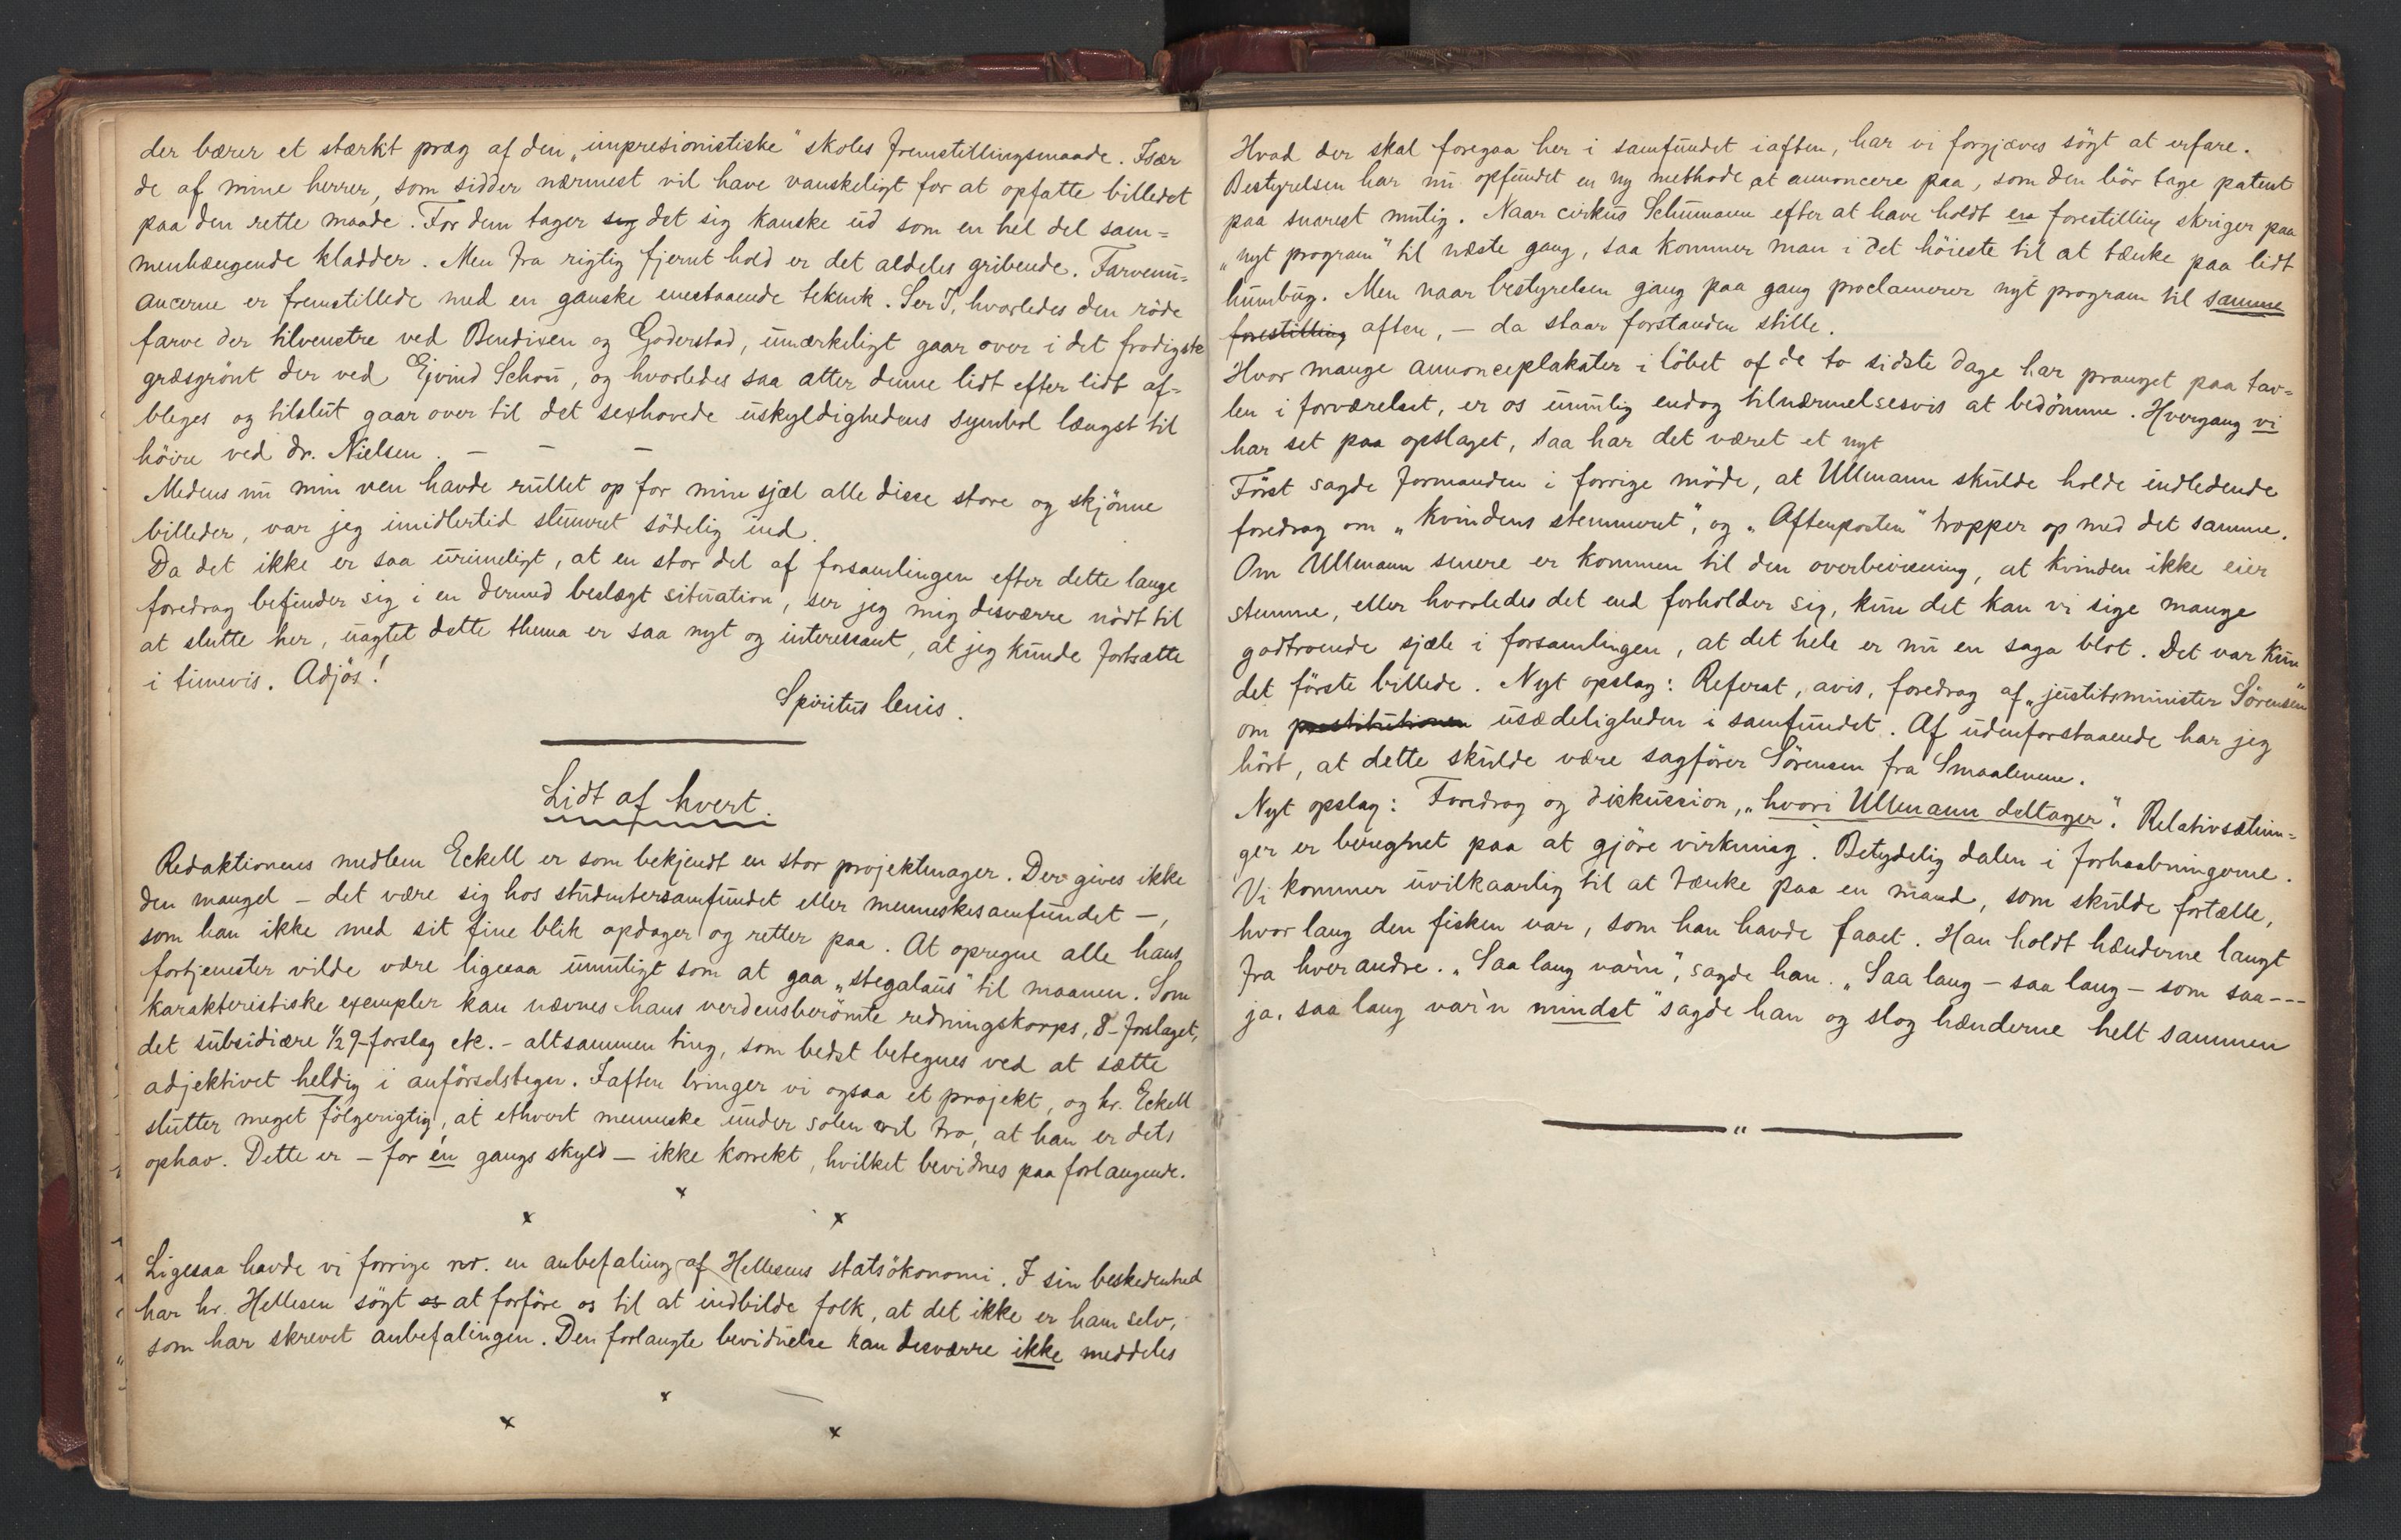 der bærer et stærkt præg af den „impresionistiske“ skoles fremstillingsmaade. Især
de af mine herrer, som sidder nærmest vil have vanskeligt for at opfatte billedet
paa den rette maade. For dem tager sig det sig kanske ud som en hel del sam=
menhængende kladder. Men fra rigtig fjernt hold er det aldeles gribende. Farvenu=
ancerne er fremstillede med en ganske enestaaende teknik. Ser I, hvorledes den röde
farve der tilvenstre ved Bendixen og Goderstad, umærkeligt gaar over i det frodigste
græsgrönt der ved Ejvind Schou, og hvorledes saa atter denne lidt efter lidt af=
bleges og tilslut gaar over til det sexhovede uskyldighedens symbol længst til
höire ved dr. Nielsen. — — —
Medens nu min ven havde rullet op for min sjæl alle disse store og skjönne
billeder, var jeg imidlertid slumret södelig ind.
Da det ikke er saa urimeligt, at en stor del af forsamlingen efter dette lange
foredrag befinder sig i en dermed beslægt situation, ser jeg mig desværre nödt til
at slutte her, uagtet dette thema er saa nyt og interessant, at jeg kunde fortsætte
i timevis. Adjös!
Spiritus lenis.
Lidt af hvert.
Redaktionens medlem Eckell er som bekjendt en stor projektmager. Der gives ikke
den mangel – det være sig hos studentersamfundet eller menneskesamfundet –,
som han ikke med sit fine blik opdager og retter paa. At opregne alle hans
fortjenester vilde være ligesaa umuligt som at gaa „stegalaus“ til maanen. Som
karakteristiske exempler kan nævnes hans verdensberömte redningskorps, 8-forslaget,
det subsidiære ½9-forslag etc. – altsammen ting, som bedst betegnes ved at sætte
adjektivet heldig i anförselstegn. Iaften bringer vi ogsaa et projekt, og hr. Eckell
slutter meget fölgerigtig, at ethvert menneske under solen vil tro, at han er dets
ophav. Dette er – for én gangs skyld – ikke korrekt, hvilket bevidnes paa forlangende.
x x x
Ligesaa havde vi forrige nr. en anbefaling af Hellesens statsökonomi. I sin beskedenhed
har hr. Hellesen sögt os at forföre os til at indbilde folk, at det ikke er ham selv,
som har skrevet anbefalingen. Den forlangte bevidnelse kan desværre ikke meddeles
x x x
Hvad der skal foregaa her i samfundet iaften, har vi forgjæves sögt at erfare.
Bestyrelsen har nu opfundet en ny methode at annoncere paa, som den bör tage patent
paa snarest mulig. Naar cirkus Schumann efter at have holdt en forestilling skriger paa
„nyt program“ til næste gang, saa kommer man i det höieste til at tænke paa lidt
humbug. Men naar bestyrelsen gang paa gang proclamerer nyt program til samme
forestilling aften, – da staar forstanden stille.
Hvor mange annonceplakater i löbet af de to sidste dage har pranget paa tav=
len i forværelset, er os umulig endog tilnærmelsesvis at bedömme. Hvergang vi
har set paa opslaget, saa har det været et nyt
Först sagde formanden i forrige möde, at Ullmann skulde holde indledende
foredrag om „kvindens stemmeret“, og „Aftenposten“ tropper op med det samme.
Om Ullmann senere er kommen til den overbevisning, at kvinden ikke eier
stemme, eller hvorledes det end forholder sig, kun det kan vi sige mange
godtroende sjæle i forsamlingen, at det hele er nu en saga blot. Det var kun
det förste billede. Nyt opslag: Referat, avis, foredrag af „justitsminister Sörensen“
om prostitutionen usædeligheden i samfundet. Af udenforstaaende har jeg
hört, at dette skulde være sagförer Sörensen fra Smaalenene.
Nyt opslag: Foredrag og diskussion, „hvori Ullmann deltager“. Relativsætnin=
ger er beregnet paa at gjöre virkning. Betydelig dalen i forhaabningerne.
Vi kommer uvilkaarlig til at tænke paa en mand, som skulde fortælle,
hvor lang den fisken var, som han havde faaet. Han holdt hænderne langt
fra hverandre. „Saa lang var'n“, sagde han. „Saa lang – saa lang – som saa---
ja, saa lang var'n mindst“ sagde han og slog hænderne helt sammen